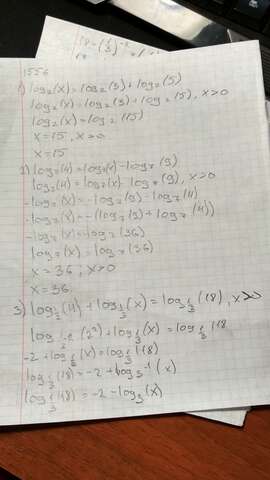 1556
1) log₂(x)=log₂(3)+log₂(5)
log₂(x)=log₂(3)+log₂(5), x>0
log₂(x)=log₂(15)
x=15, x>0
x=15
2) log₇(4)=log₇(x)-log₇(9)
log₇(4)=log₇(x)-log₇(9), x>0
-log₇(x)=-log₇(9)-log₇(4)
-log₇(x)=-(log₇(9)+log₇(4))
-log₇(x)=-log₇(36)
log₇(x)=log₇(36)
x=36, x>0
x=36
3) log_{1/2}(4)+log_{1/3}(x)=log_{1/3}(18), x>0
(2²)+log_{1/3}(x)=log_{1/3}(18
-2+log_{1/3}(x)=log_{1/3}(18)
log_{1/3}(18)=-2+log_{3^{-1}}(x)
log_{1/3}(18)=-2-log₃(x)